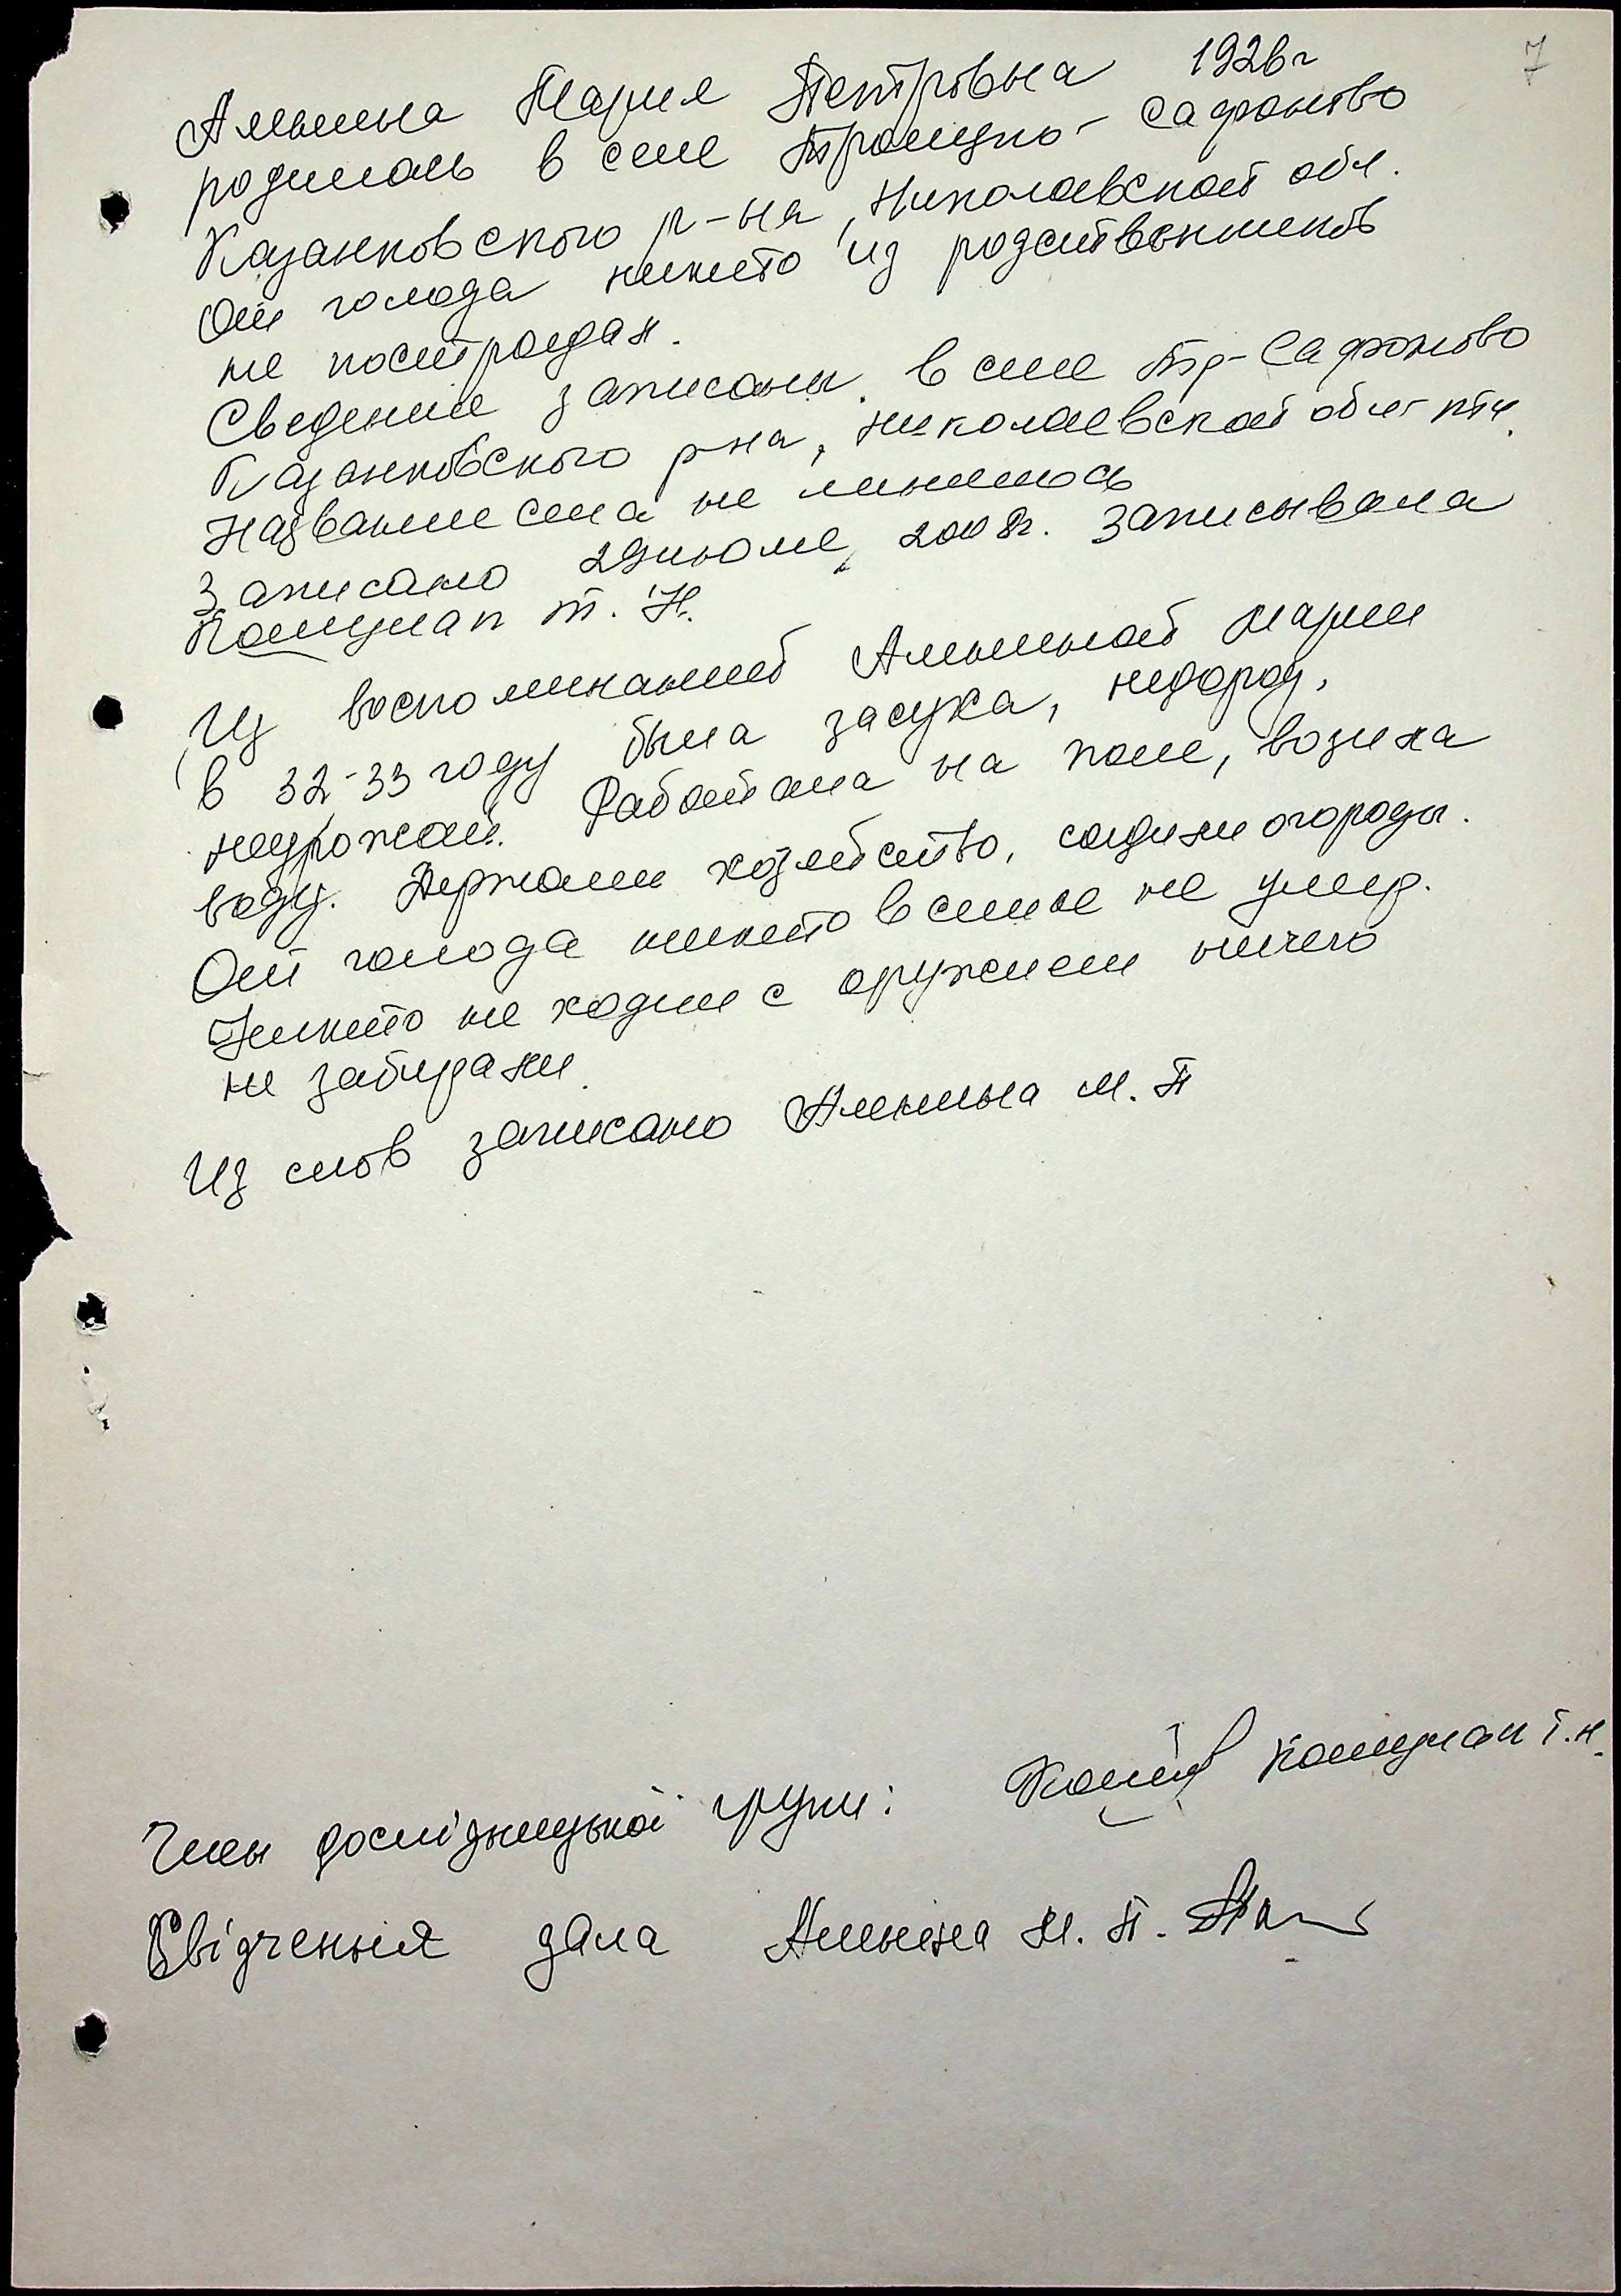 7
Алёшина Мария Петровна 1926г
родилась в селе Троицко-Сафоново
Казанковского р-на, Николаевской обл.
От голода никто из родственников
не пострадал.
Сведения записаны в селе Тр-Сафоново
Казанковского р-на, Николаевской обл-сти.
Название села не менялось
Записано 29 июля, 2008г. Записывала
Коцулап Т.Н.
Из воспоминаний Мария
в 32-33 году была засуха, недород,
неурожай. Работала на поле, возила
воду. Держали хозяйство, садили огороды.
От голода никто в семье не умер.
Никто не ходил с оружием ничего
не забирали.
Из слов записано М.П
Член дослідницької групи: Т.Н.
Свідчення дала М.П.